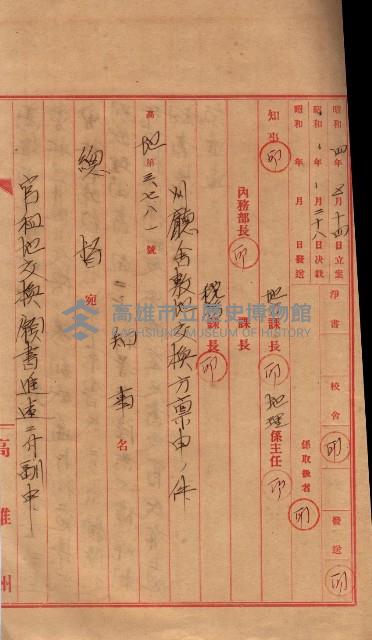 昭和四年 月十四日立案
昭和 年 月二十八日決裁
昭和 年 月 日發送
淨書
校合 印
發送 印
係取扱者 印
知事 印
地課長 印
地理係主任 印
內務部長 印
課長
稅課長 印
州廳舍敷地交換方稟申ノ件
高地第三、七八一號
總督宛
知事名
官租地交換願書進達ニ付副申
高雄州
高雄市立歷史博物館
KAOHSIUNG MUSEUM OF HISTORY